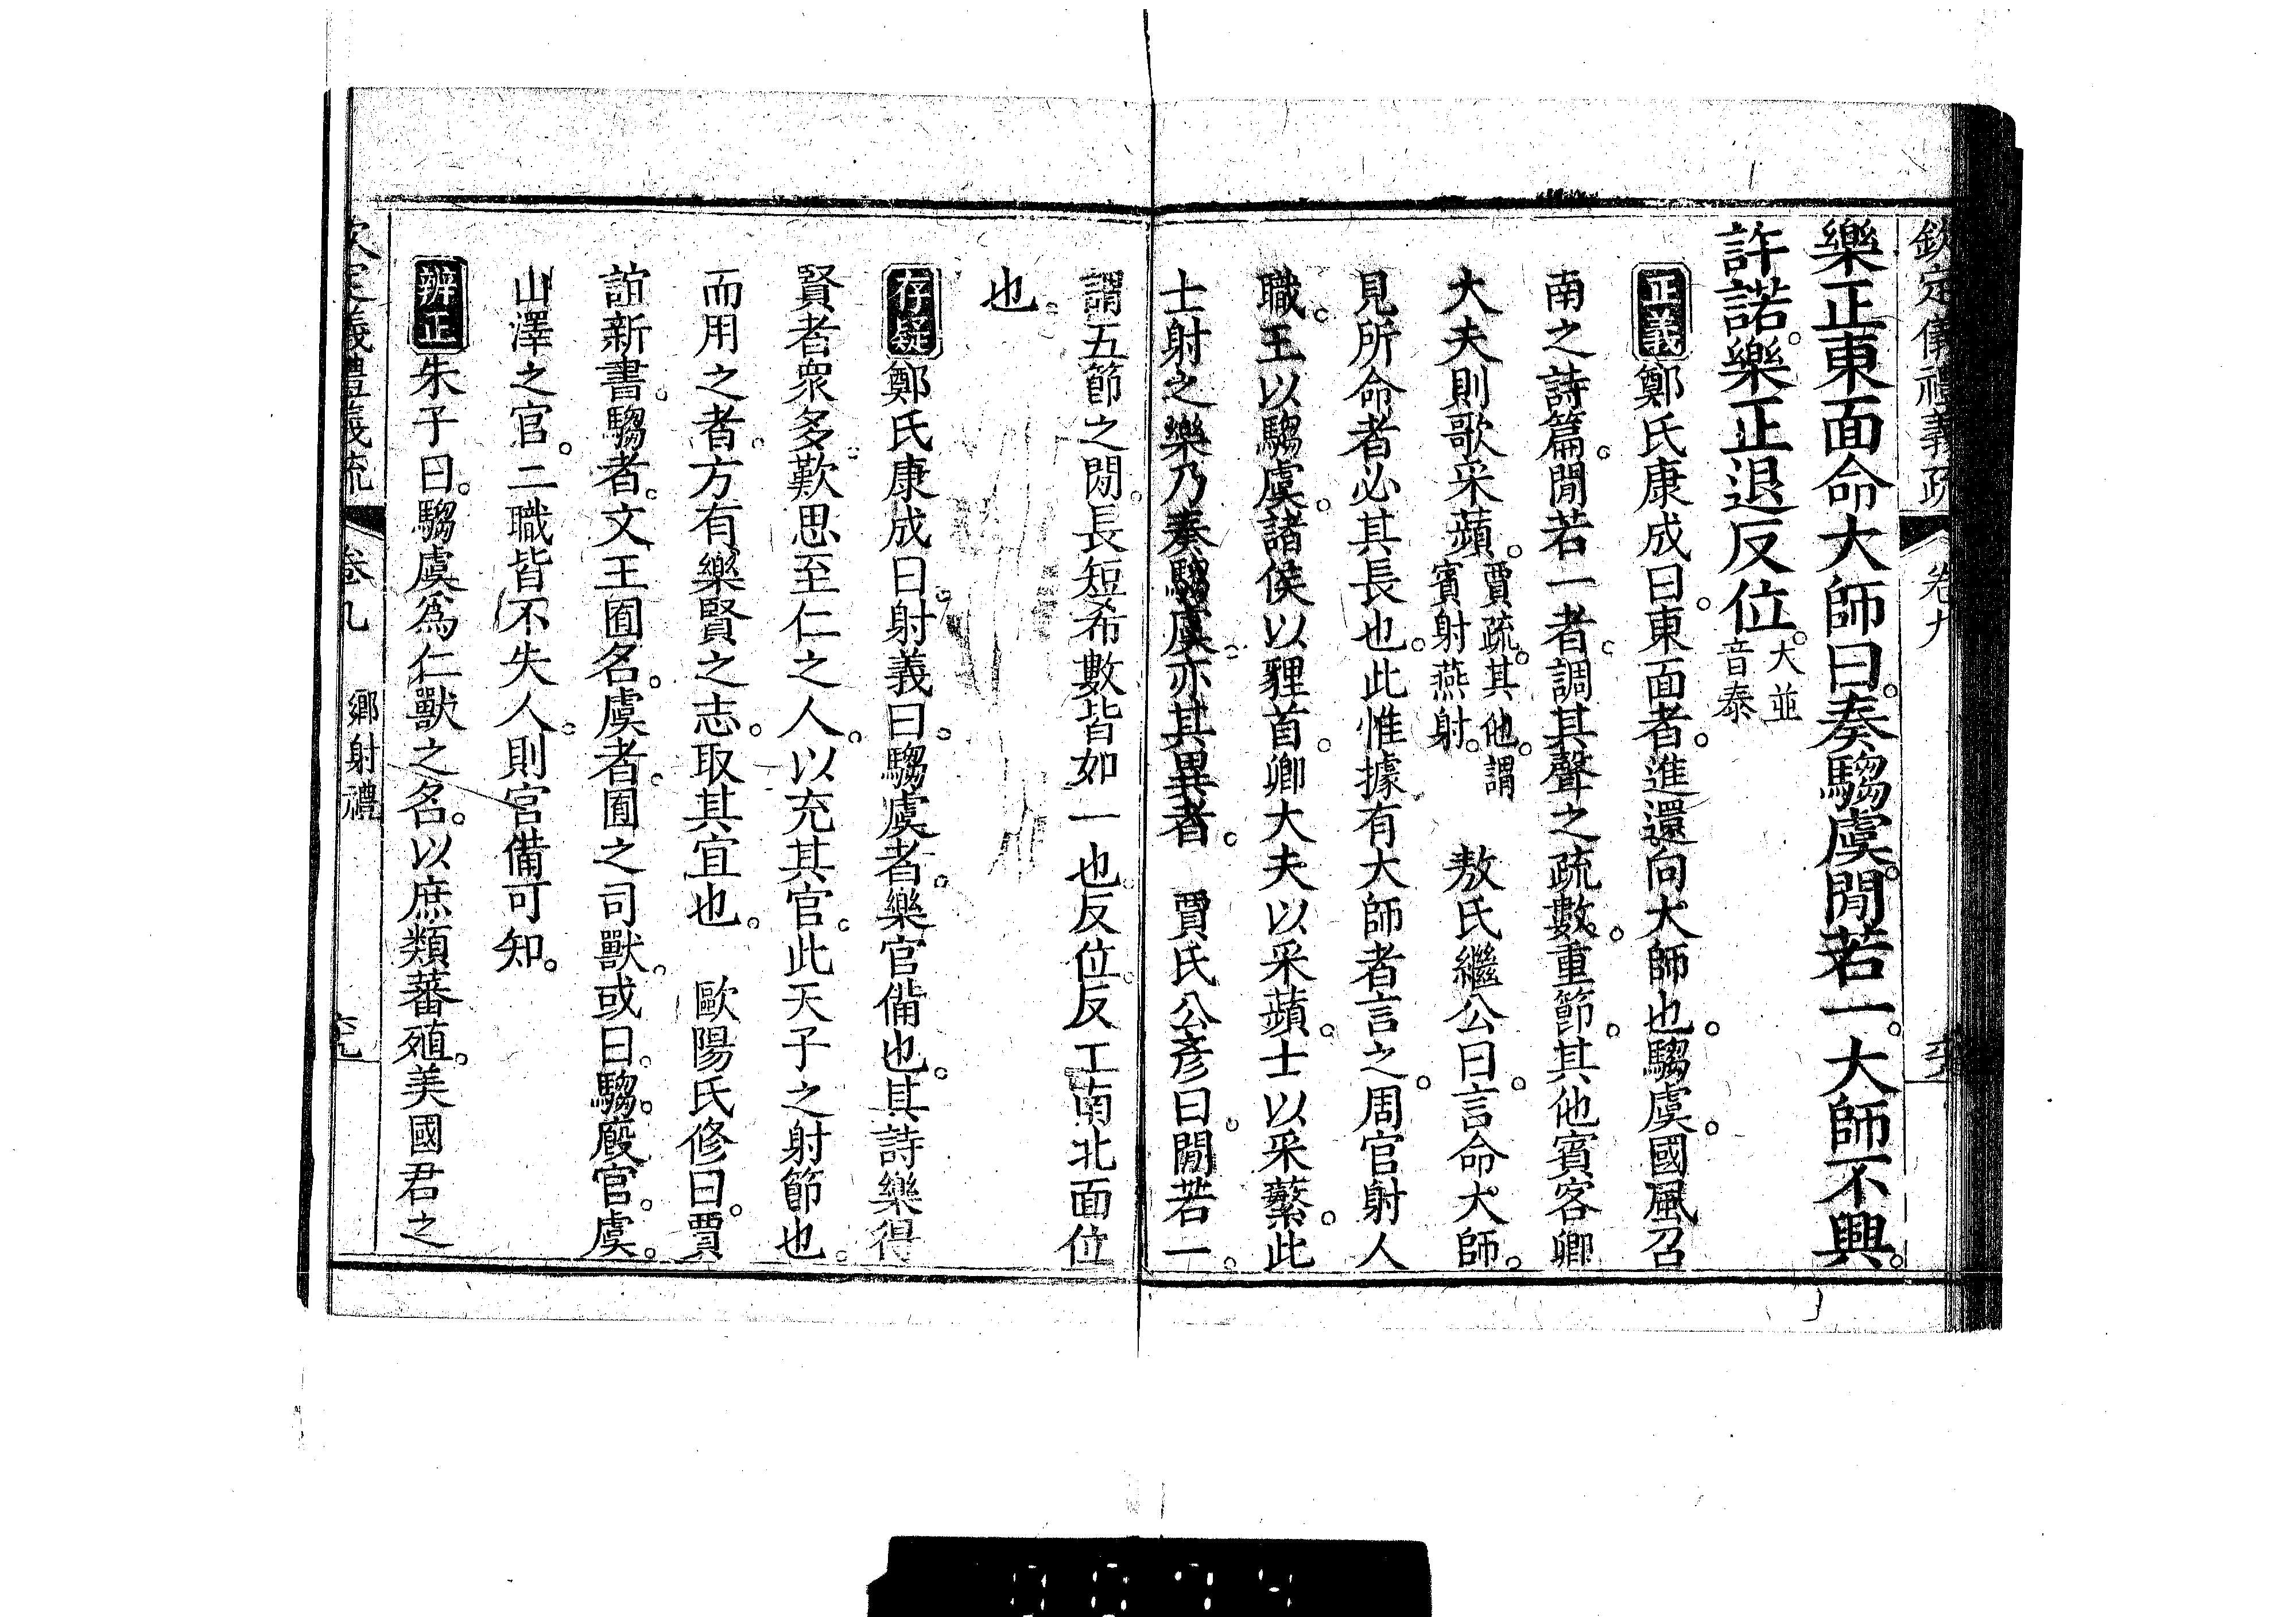 欽定儀禮義疏 卷九
樂正東面命大師曰。奏騶虞。閒若一。大師不興。
許諾。樂正退反位。大並音泰
正義鄭氏康成曰。東面者。進還向大師也。騶虞。國風召
南之詩篇。閒若一者。調其聲之疏數。重節。其他賓客卿
大夫則歌采蘋。賈疏。其他。謂賓射燕射。 敖氏繼公曰。言命大師。
見所命者必其長也。此惟據有大師者言之。周官射人
職。王以騶虞。諸侯以貍首。卿大夫以采蘋。士以采蘩。此
士射之樂乃奏騶虞。亦其異者。 賈氏公彥曰。閒若一。
謂五節之閒。長短希數皆如一也。反位。反工南北面位
也。
存疑鄭氏康成曰。射義曰。騶虞者。樂官備也。其詩樂得
賢者衆多。歎思至仁之人。以充其官。此天子之射節也。
而用之者。方有樂賢之志。取其宜也。 歐陽氏修曰。賈
誼新書。騶者。文王囿名。虞者。囿之司獸。或曰。騶。廄官。虞。
山澤之官。二職皆不失人。則官備可知。
辨正朱子曰。騶虞爲仁獸之名。以庶類蕃殖。美國君之
欽定義禮義疏 卷九 鄉射禮